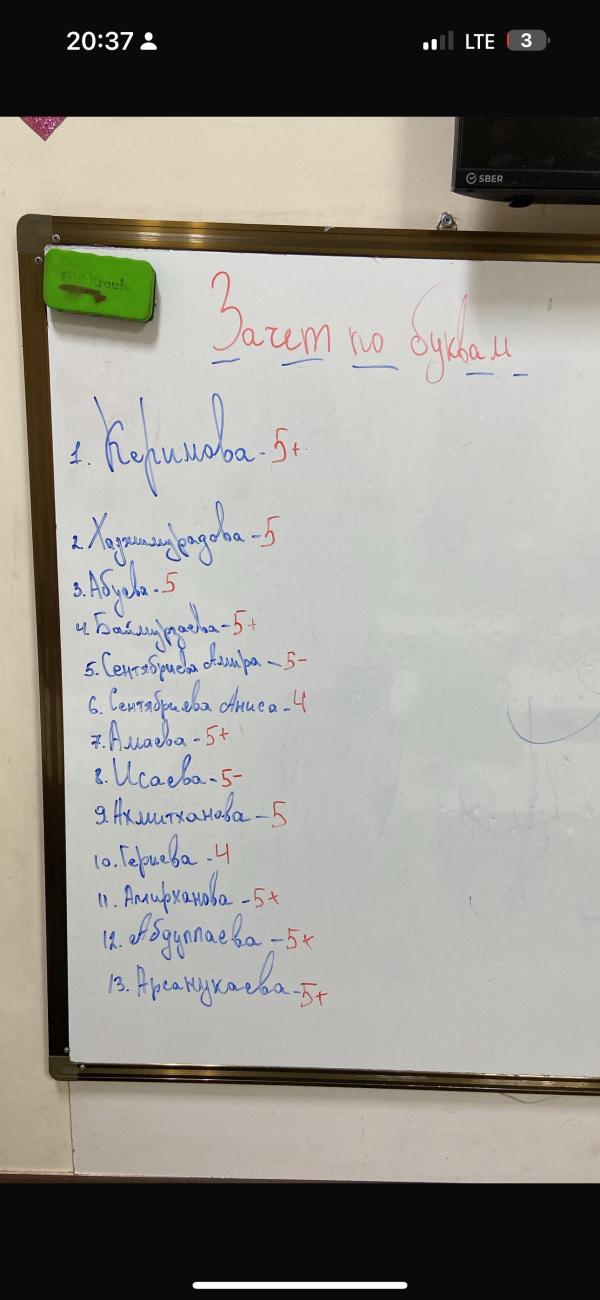 20:37
LTE
3
SBER
Erich Krause
Зачет по буквам
1. Керимова - 5+
2. Хаджимурадова - 5
3. Абуева - 5
4. Баймурзаева - 5+
5. Сентябриева Амира - 5-
6. Сентябриева Аниса - 4
7. Амаева - 5+
8. Исаева - 5-
9. Ахмитханова - 5
10. Гериева - 4
11. Амирханова - 5+
12. Абдуллаева - 5+
13. Арсанукаева - 5+